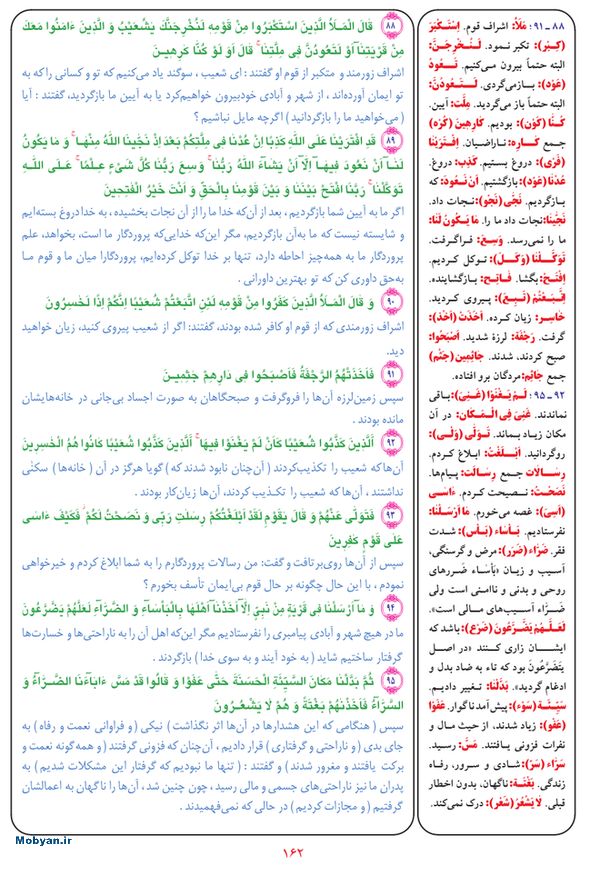 ۸۸ قالَ الْمَلَأُ الَّذينَ اسْتَكْبَرُوا مِنْ قَوْمِهِ لَنُخْرِجَنَّكَ يٰشُعَيْبُ وَ الَّذينَ ءَامَنُوا مَعَكَ
مِنْ قَرْيَتِنآ أَوْ لَتَعُودُنَّ فى مِلَّتِنا قالَ أَوَ لَوْ كُنّا كٰرِهينَ
اشراف زورمند و متکبر از قوم او گفتند : ای شعیب ، سوگند یاد می‌کنیم که تو و کسانی را که به
تو ایمان آورده‌اند ، از شهر و آبادی خودبیرون خواهیم‌کرد یا به آیین ما بازگردید، گفتند : آیا
( می‌خواهید ما را بازگردانید ) اگرچه مایل نباشیم ؟
۸۹ قَدِ افْتَرَيْنا عَلَى اللّهِ كَذِبًا إِنْ عُدْنا فى مِلَّتِكُمْ بَعْدَ إِذْ نَجّينَا اللّهُ مِنْها وَ ما يَكُونُ
لَنآ أَنْ نَعُودَ فيهآ إِلّآ أَنْ يَشآءَ اللّهُ رَبُّنا وَسِعَ رَبُّنا كُلَّ شَىْءٍ عِلْمًا عَلَى اللّهِ
تَوَكَّلْنا رَبَّنَا افْتَحْ بَيْنَنا وَ بَيْنَ قَوْمِنا بِالْحَقِّ وَ أَنْتَ خَيْرُ الْفٰتِحينَ
اگر ما به آیین شما بازگردیم ، بعد از آن‌که خدا ما را از آن نجات بخشیده ، به خدا دروغ بسته‌ایم
و شایسته نیست که ما به‌آن بازگردیم، مگر این‌که خدایی‌که پروردگار ما است، بخواهد، علم
پروردگار ما به همه‌چیز احاطه دارد، تنها بر خدا توکل کرده‌ایم، پروردگارا میان ما و قوم ما
به‌حق داوری کن که تو بهترین داورانی .
۹۰ وَ قالَ الْمَلَأُ الَّذينَ كَفَرُوا مِنْ قَوْمِهِ لَئِنِ اتَّبَعْتُمْ شُعَيْبًا إِنَّكُمْ إِذًا لَخٰسِرُونَ
اشراف زورمندی که از قوم او کافر شده بودند، گفتند: اگر از شعیب پیروی کنید، زیان خواهید
دید.
۹۱ فَأَخَذَتْهُمُ الرَّجْفَةُ فَأَصْبَحُوا فى دارِهِمْ جٰثِمينَ
سپس زمین‌لرزه آن‌ها را فروگرفت و صبحگاهان به صورت اجساد بی‌جانی در خانه‌هایشان
مانده بودند .
۹۲ أَلَّذينَ كَذَّبُوا شُعَيْبًا كَأَنْ لَمْ يَغْنَوْا فيهَا أَلَّذينَ كَذَّبُوا شُعَيْبًا كانُوا هُمُ الْخٰسِرينَ
آن‌ها که شعیب را تکذیب‌کردند ( آن‌چنان نابود شدند که ) گویا هرگز در آن ( خانه‌ها ) سکنٰی
نداشتند ، آن‌ها که شعیب را تکـذیب کردند، آن‌ها زیان‌کار بودند .
۹۳ فَتَوَلّى عَنْهُمْ وَ قالَ يٰقَوْمِ لَقَدْ أَبْلَغْتُكُمْ رِسٰلٰتِ رَبّى وَ نَصَحْتُ لَكُمْ فَكَيْفَ ءَاسى
عَلى قَوْمٍ كٰفِرينَ
سپس از آن‌ها روی‌برتافت و گفت: من رسالات پروردگارم را به شما ابلاغ کردم و خیرخواهی
نمودم ، با این حال چگونه بر حال قوم بی‌ایمان تأسف بخورم ؟
۹۴ وَ مآ أَرْسَلْنا فى قَرْيَةٍ مِنْ نَبِىٍّ إِلّآ أَخَذْنآ أَهْلَها بِالْبَأْسآءِ وَ الضَّرّآءِ لَعَلَّهُمْ يَضَّرَّعُونَ
ما در هیچ شهر و آبادی پیامبری را نفرستادیم مگر این‌که اهل آن را به ناراحتی‌ها و خسارت‌ها
گرفتار ساختیم شاید ( به خود آیند و به سوی خدا ) بازگردند .
۹۵ ثُمَّ بَدَّلْنا مَكانَ السَّيِّئَةِ الْحَسَنَةَ حَتّى عَفَوْا وَ قالُوا قَدْ مَسَّ ءَابآءَنَا الضَّرّآءُ وَ
السَّرّآءُ فَأَخَذْنٰهُمْ بَغْتَةً وَ هُمْ لا يَشْعُرُونَ
سپس ( هنگامی که این هشدارها در آن‌ها اثر نگذاشت ) نیکی ( و فراوانی نعمت و رفاه ) به
جای بدی ( و ناراحتی و گرفتاری ) قرار دادیم ، آن‌چنان که فزونی گرفتند ( و همه‌گونه نعمت و
برکت یافتند و مغرور شدند ) و گفتند : ( تنها ما نبودیم که گرفتار این مشکلات شدیم ) به
پدران ما نیز ناراحتی‌های جسمی و مالی رسید ، چون چنین شد ، آن‌ها را ناگهان به اعمالشان
گرفتیم ( و مجازات کردیم ) در حالی که نمی‌فهمیدند .
۸۸ ـ ۹۱: مَلَأُ: اشراف قوم. اِسْتَكْبَرَ
(كِبْر): تکبر نمود. لَنُخْرِجَنَّ:
البته حتماً بیرون می‌کنیم. تَعُودُ
(عَوْد): بازمی‌گردی. لَتَعُودُنَّ:
البته حتماً باز می‌گردید. مِلَّت: آیین.
كُنّا (كَوْن): بودیم. كارِهين (كُرْه)
جمع كاره: ناراضیان. اِفْتَرَيْنا
(فَرْى): دروغ بستیم. كَذِب: دروغ.
عُدْنا (عَوْد): بازگشتیم. أَنْ نَعُودَ: که
بازگردیم. نَجّى (نَجْو): نجات داد.
نَجّينا: نجات داد ما را. ما يَكُونُ لَنا:
ما را نمی‌رسد. وَسِعَ: فراگرفت.
تَوَكَّلْنا (وَكْل): توکل کردیم.
اِفْتَحْ: بگشا. فاتِح: بازگشاینده.
اِتَّبَعْتُمْ (تَبِعَ): پیروی کردید.
خاسِر: زیان کرده. أَخَذَتْ (أَخْذ):
گرفت. رَجْفَة: لرزه شدید. أَصْبَحُوا:
صبح کردند، شدند. جاثِمين (جَثْم)
جمع جاثِم: مردگان برو افتاده.
۹۲ ـ ۹۵: لَمْ يَغْنَوْا (غَنِىَ): باقی
نماندند. غَنِىَ فِى الْمَكان: در آن
مکان زیاد بماند. تَوَلّى (وَلْى):
روگردانید. أَبْلَغْتُ: ابلاغ کردم.
رِسالات جمع رِسالَت: پیام‌ها.
نَصَحْتُ: نصیحت کردم. ءَاسى
(أَسِىَ): غصه می‌خورم. ما أَرْسَلْنا:
نفرستادیم. بَأْساء (بَأْس): شدت
فقر. ضَرّاء (ضَرَر): مرض و گرسنگی،
آسیب و زیان «بَأساء ضررهای
روحی و بدنی و ناامنی است ولی
ضَرّاء آسیب‌های مالی است».
لَعَلَّهُمْ يَضَّرَّعُونَ (ضَرَع): باشد که
ایشان زاری کنند «در اصل
يَتَضَرَّعُونَ بود که تاء به ضاد بدل و
ادغام گردید». بَدَّلْنا: تغییر دادیم.
سَيِّئَة (سَوْء): پیش‌آمد ناگوار. عَفَوْا
(عَفْو): زیاد شدند، از حیث مال و
نفرات فزونی یافتند. مَسَّ: رسید.
سَرّاء (سَرّ): شادی و سرور، رفاه
زندگی. بَغْتَة: ناگهان، بدون اخطار
قبلی. لا يَشْعُرُ (شَعْر): درک نمی‌کند.
Mobyan.ir
۱۶۲